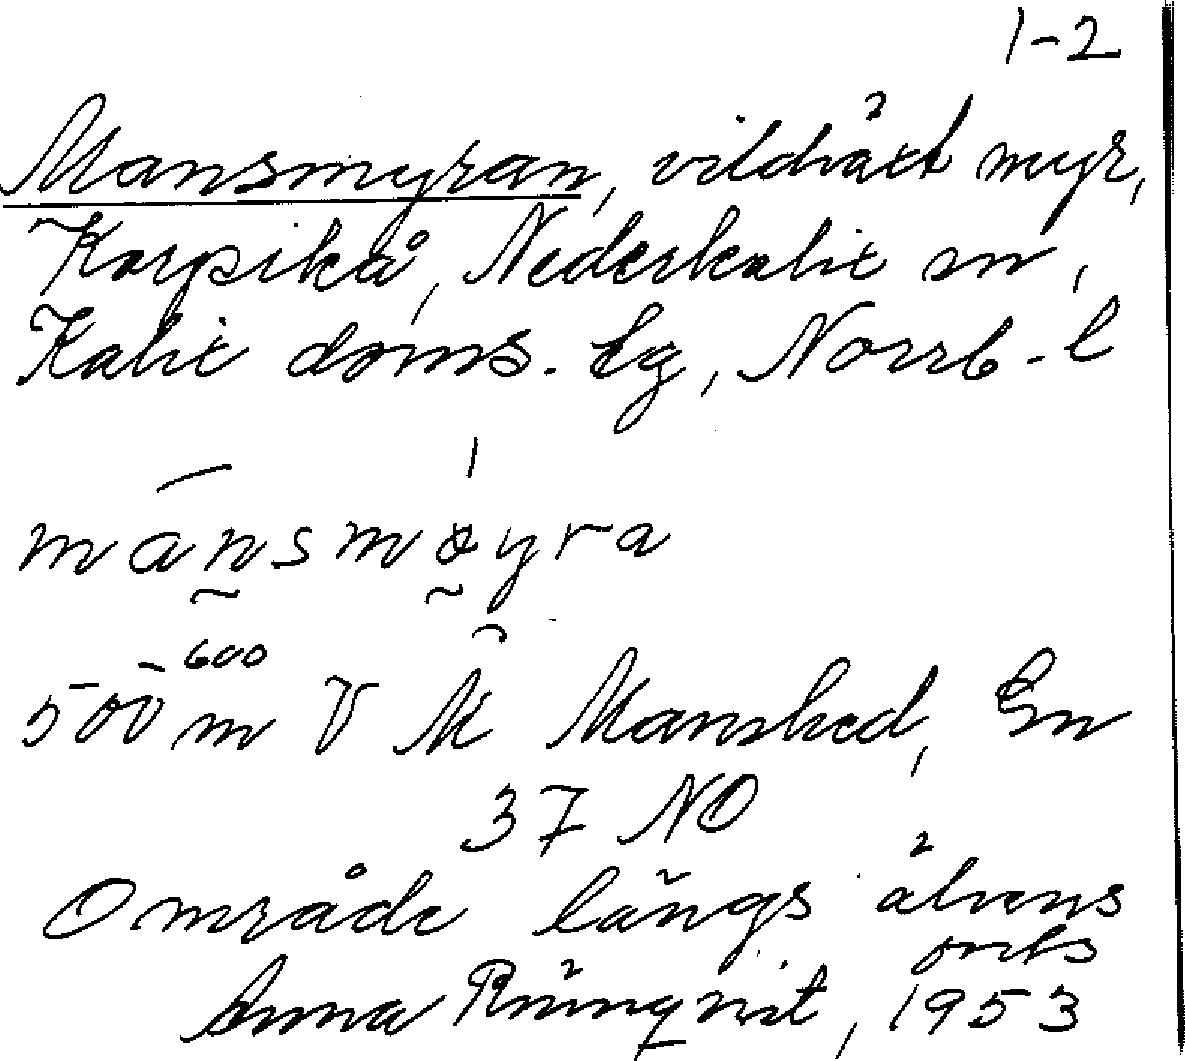 1-2
Mansmyran, vildväxt myr,
Korpikå, Nederkalix sn,
Kalix doms. tg, Norrb. l
mánsmøyra
600
500 m V M Manshed, Gn
37 NO
Område längs älvens
orts
Anna Rönnqvist, 1953